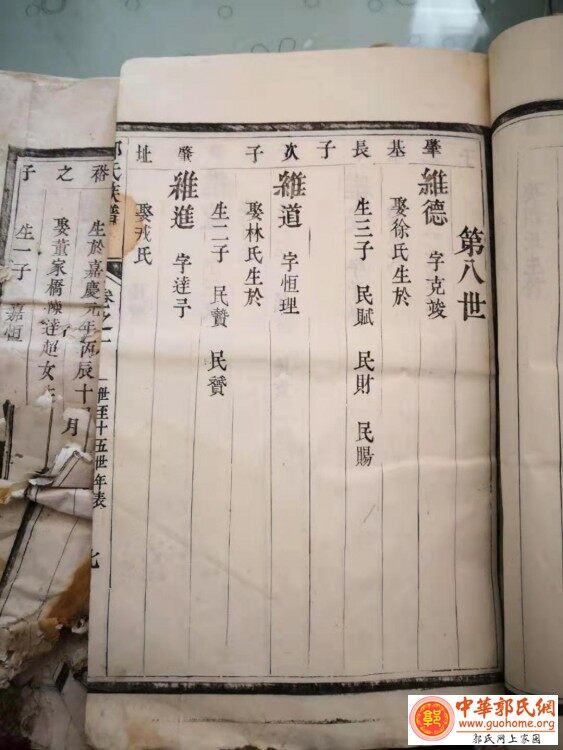 第八世
肇基長子
維德 字克竣
娶徐氏生於
生三子 民賦 民財 民賜
次子
維道 字恒理
娶林氏生於
生二子
肇址
維進 字達
氏
郭氏族譜 卷之一 一世至十五世年表 七
之子
生於嘉慶元年丙辰十 月
娶董家橋陳達超女
生一子 嘉恒
中華郭氏網
www.guohome.org
郭氏网上家園